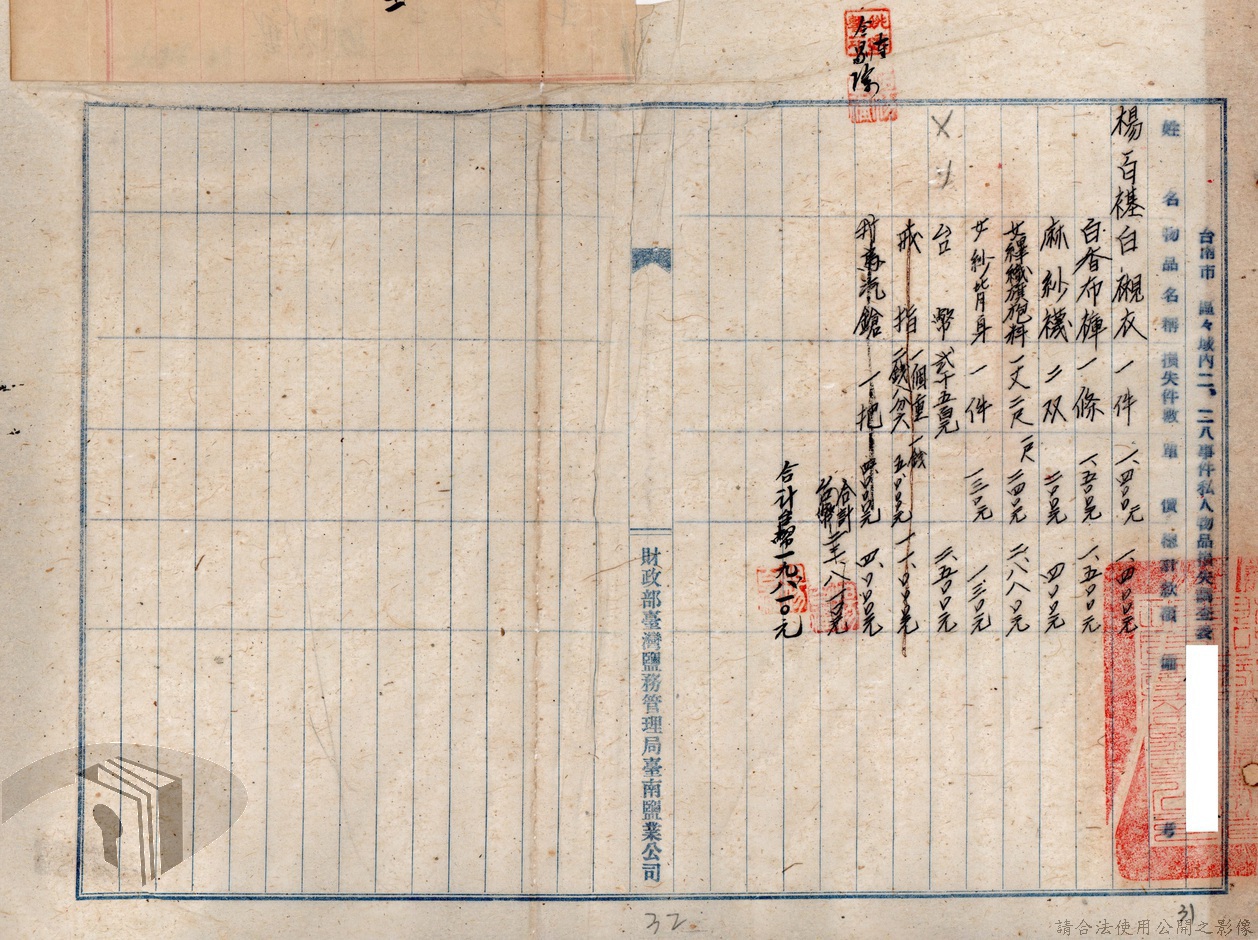 台南市 區々域內二、二八事件私人物品損失調查表
姓 名 物 品 名 稱 損失件數 單 價 總計款價 備 考
楊百禥 白襯衣 一件 一、四〇〇元 一、四〇〇元
百香布褲 一條 一、五〇〇元 一、五〇〇元
麻紗襪 二双 二〇〇元 四〇〇元
女綢織旗袍料 一丈二尺 一尺 二四〇元 二、八八〇元
女紗背身 一件 一三〇元 一三〇元
台幣 貳千五百元 二、五〇〇元
戒指 一個重一錢
二錢八分六 五、〇〇〇元
打鳥汽鎗 一把 四、〇〇〇元 四、〇〇〇元
合計
台幣
合計台幣一九、八一〇元
財政部臺灣鹽務管理局臺南鹽業公司
32
31
請合法使用公開之影像